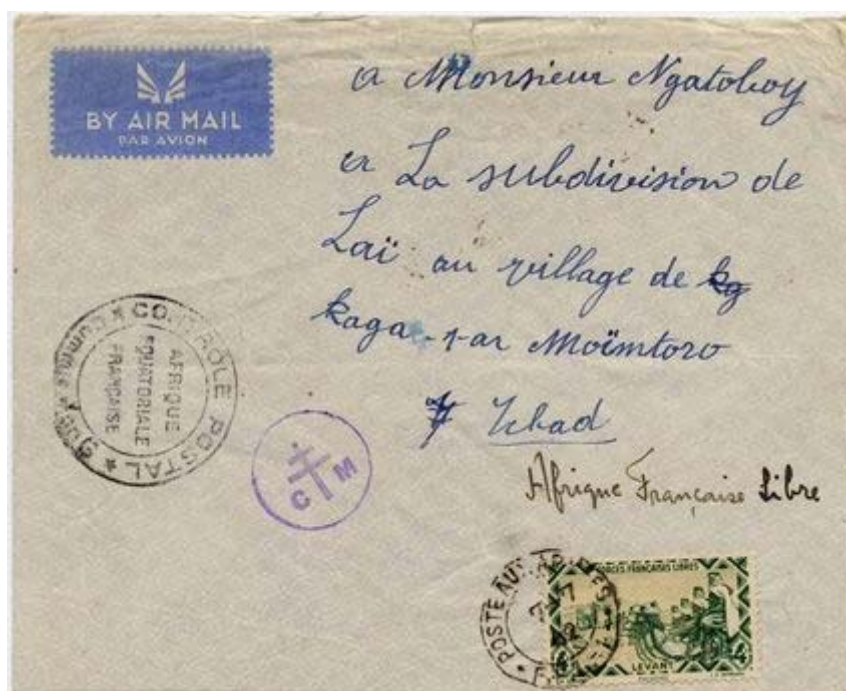 BY AIR MAIL
PAR AVION
a Monsieur Ngatoboy
a La subdivision de
Laï au village de kg
kaga-par Moïmtoro
Tchad
Afrique Française Libre
CONTRÔLE POSTAL
AFRIQUE
EQUATORIALE
FRANÇAISE
C M
POSTE AUX ARMEES
FORCES FRANÇAISES LIBRES
LEVANT
4